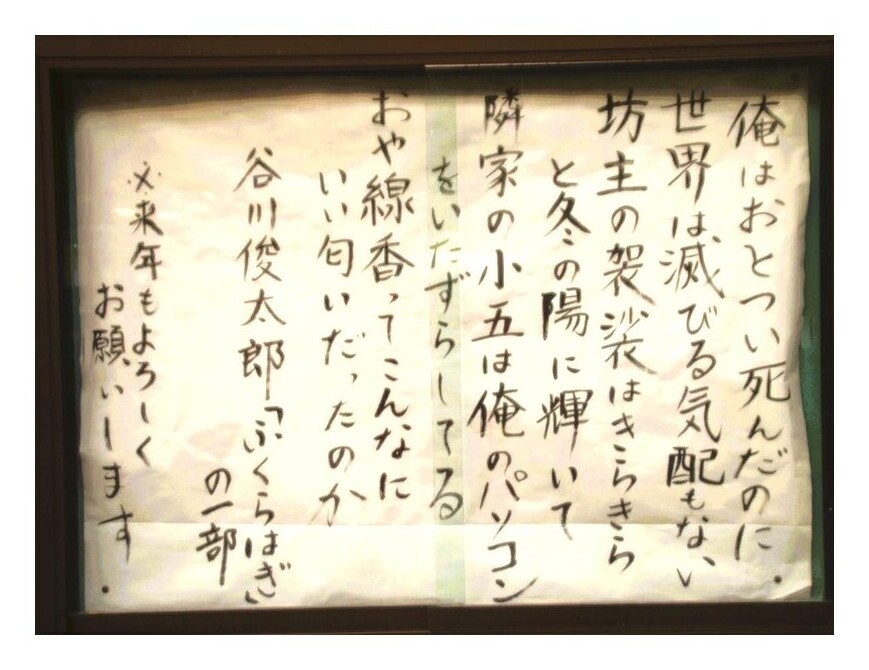 俺はおとつい死んだのに.
世界は滅びる気配もない
坊主の袈裟はきらきら
と冬の陽に輝いて
隣家の小五は俺のパソコン
をいたずらしてる
おや線香ってこんなに
いい匂いだったのか
谷川俊太郎「ふくらはぎ」
の一部
※来年もよろしく
お願いします.